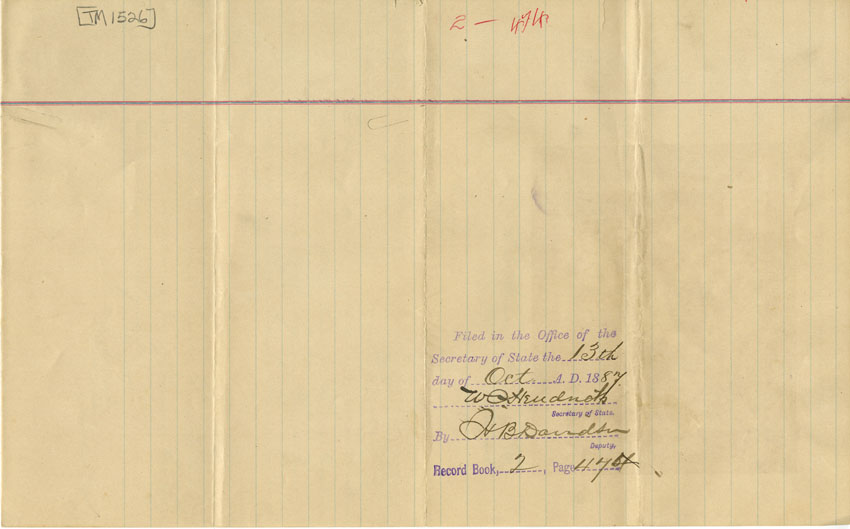 [TM 1526]
2 - 474
Filed in the Office of the
Secretary of State the 13th
day of Oct. A. D. 1887
W C Hendricks
Secretary of State.
By H B Davidson
Deputy.
Record Book, 2, Page 474